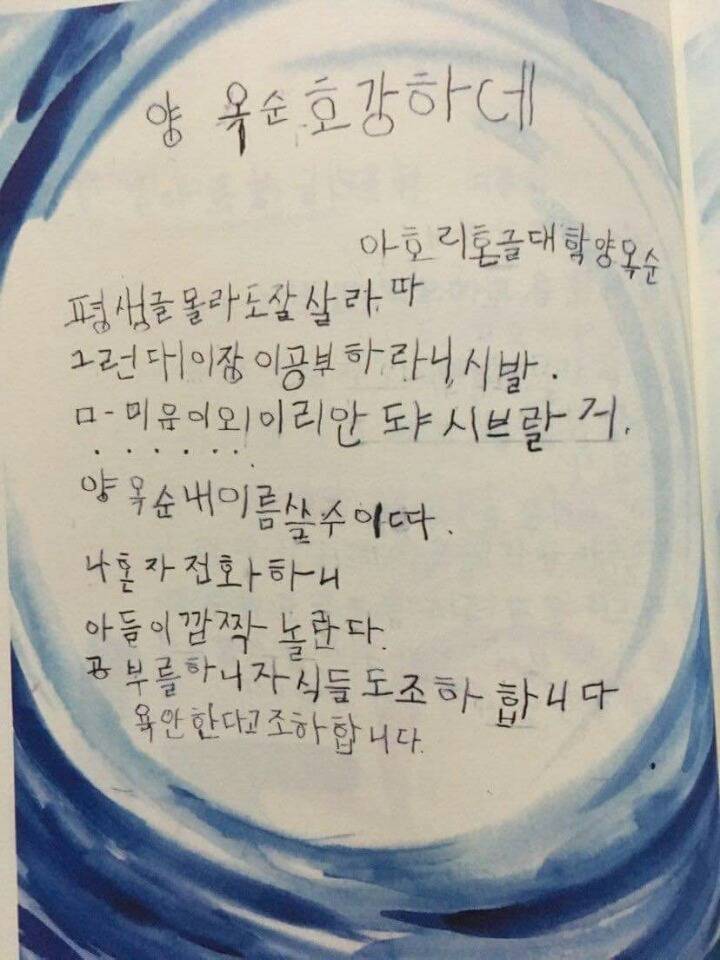 양 옥순 호강하데
아호리혼글대학양옥순
평생글몰라도잘살라따
그런대이장이공부하라니시발.
ㅁ-미음이외이리안 도야 시브랄거.
양옥순내이름쓸수이따.
나혼자전화하니
아들이깜짝놀란다.
공부를하니자식들도조하합니다
욕안한다고조하합니다.